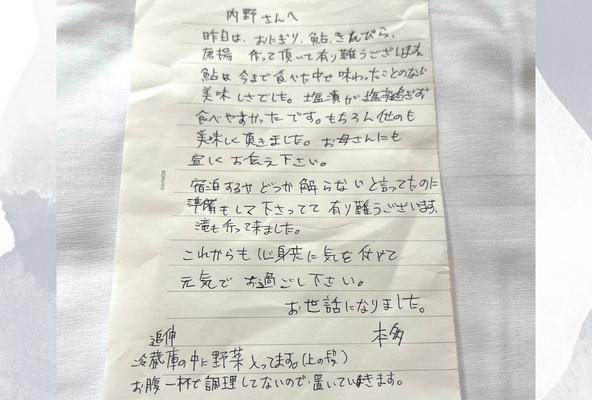 内野さんへ
昨日は、おにぎり、鮎、きんぴら、
唐揚 作って頂いて有り難うございます。
鮎は今まで食べた中で味わったことのない
美味しさでした。塩漬が塩辛過ぎず
食べやすかったです。もちろん他のも
美味しく頂きました。お母さんにも
宜しくお伝え下さい。
宿泊するかどうか解らないと言ってたのに
準備もして下さってて有り難うございます。
滝も行って来ました。
これからも心身共に気を付けて
元気でお過ごし下さい。
お世話になりました。
本多
追伸
冷蔵庫の中に野菜入ってます。(上の段)
お腹一杯で調理してないので置いていきます。